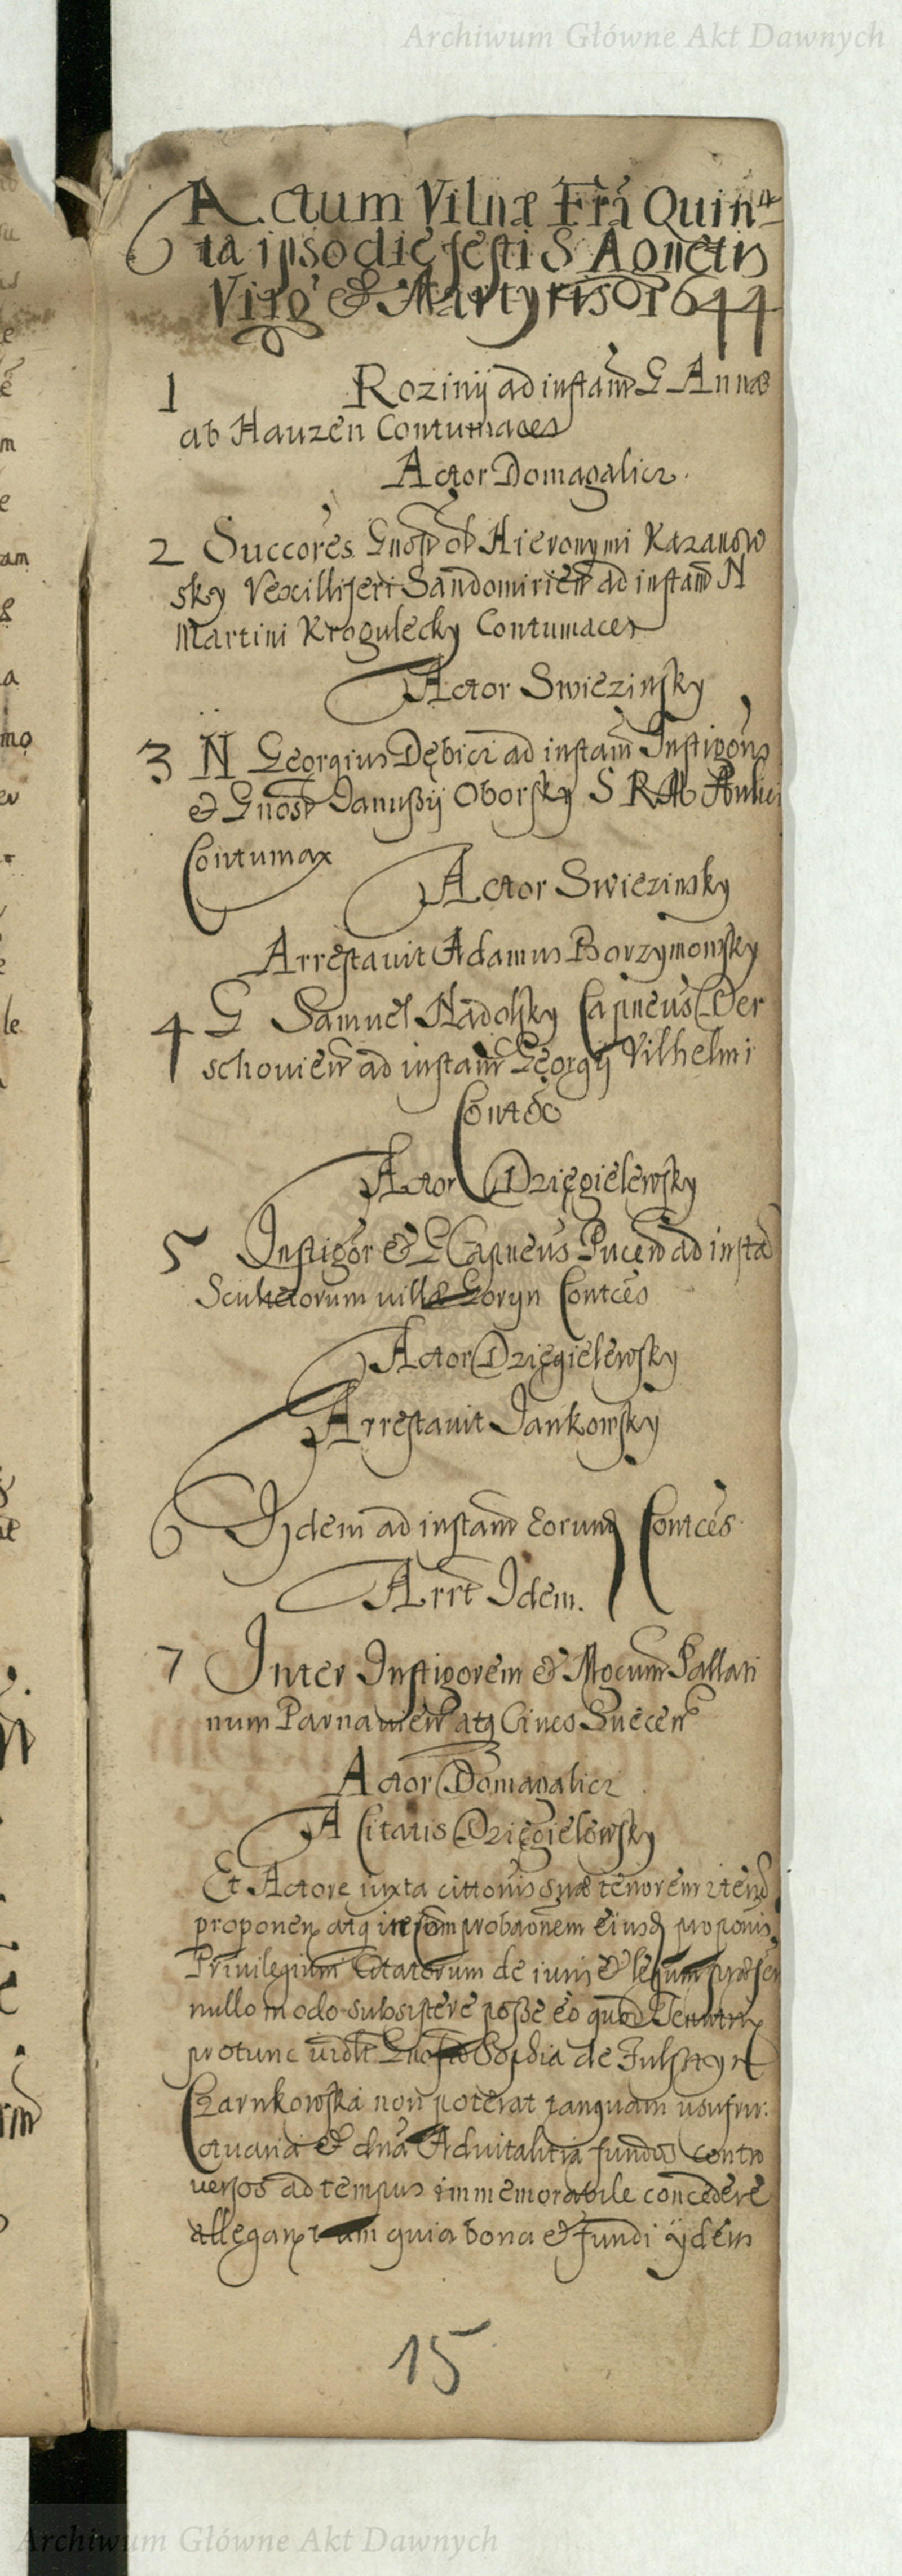 Archiwum Główne Akt Dawnych
Actum Vilnæ Fria Quin
ta ipso die festi S Agnetis
Virg & Martyris 1644
1 Rozinij ad instam G Annæ
ab Hauzen Contumaces
Actor Domagalicz.
2 Succores Gnosi ol Hieronymi Kazanow
sky Vexilliferi Sandomirien ad instam N
Martini Krogulecky Contumaces
Actor Swiezinsky
3 N Georgius Dębicz ad instam Instigoris
& Gnosi Janußij Oborsky S R M Aulici
Contumax
Actor Swiezinsky
Arrestavit Adamus Borzymowsky
4 G Samuel Nadolsky Capneus Der
schovien ad instam Georgij Vilhelmi
Contdo
Actor Dzięgielewsky
5 Instigor & G Capneus Pucen ad insta
Scultetorum villæ Goryn Contces
Actor Dzięgielewsky
Arrestavit Jankowsky
6 Ijdem ad instam eorund Contces
Arrt Idem.
7 Inter Instigorem & Mgcum Pallati
num Parnavien atq Cives Suecen
Actor Domagalicz
A Citatis Dzięgielowsky
Et Actore iuxta cittonis suæ tenorem
proponen atq in comprobaonem eiusd proponis
Privilegium Citatorum de iuris & legum
nullo modo subsistere poße eo quod Tenutrix
protunc Gnosa Sophia de Fulsztyn
Czarnkowska non poterat tanquam usufru:
ctuaria & dna Advitalitia fundos contro
versos ad tempus immemorabile concedere
allegan tam quia bona & fundi ijdem
15
Archiwum Główne Akt Dawnych